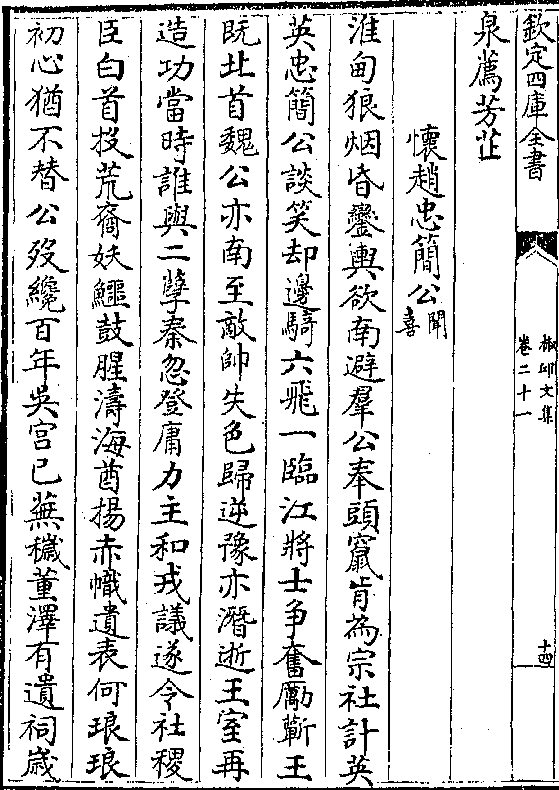 欽定四庫全書
柳邨文集
卷二十一
十四
泉薦芳芷
懷趙忠簡公聞喜
淮甸狼烟昏鑾輿欲南避羣公奉頭竄肯為宗社計英
英忠簡公談笑却邊騎六飛一臨江將士争奮厲蘄王
既北首魏公亦南至敵帥失色歸逆豫亦潛逝王室再
造功當時誰與二孽秦忽登庸力主和戎議遂令社稷
臣白首投荒裔妖鱷鼓腥濤海酋揚赤幟遺表何琅琅
初心猶不替公歿纔百年吳宫已蕪穢董澤有遺祠歲